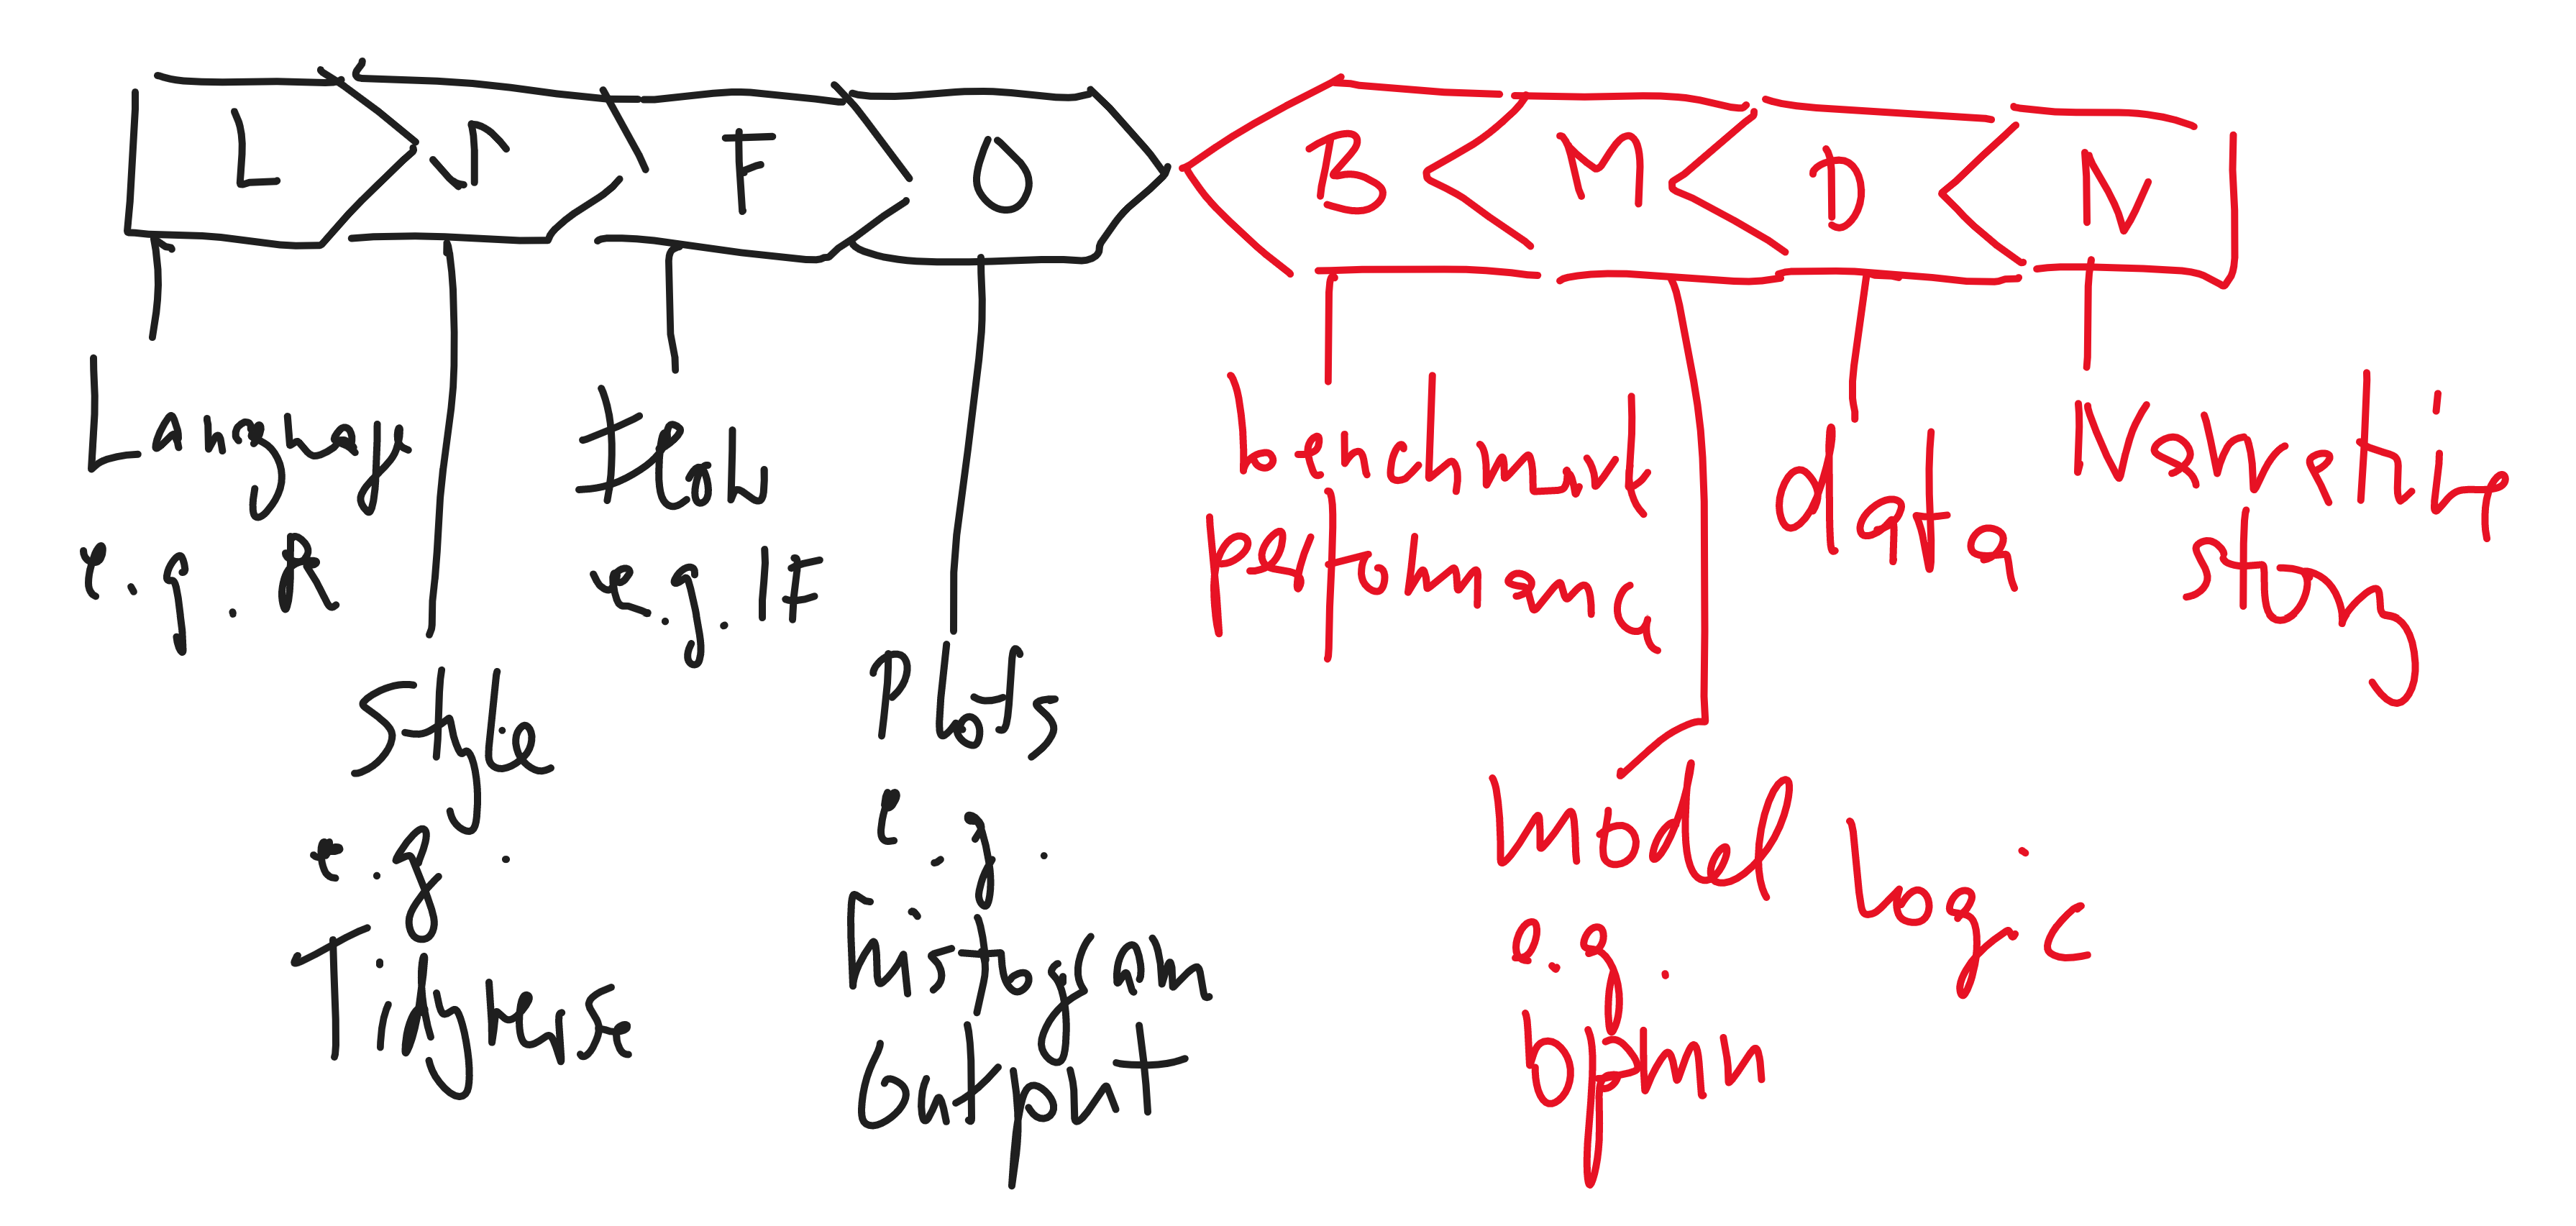 L S F O B M D N
Language
e.g. R
Style
e.g.
Tidyverse
Flow
e.g. IF
Plots
e.g.
histogram
Output
benchmark
performance
model logic
e.g.
bpmn
data
Narrative
story